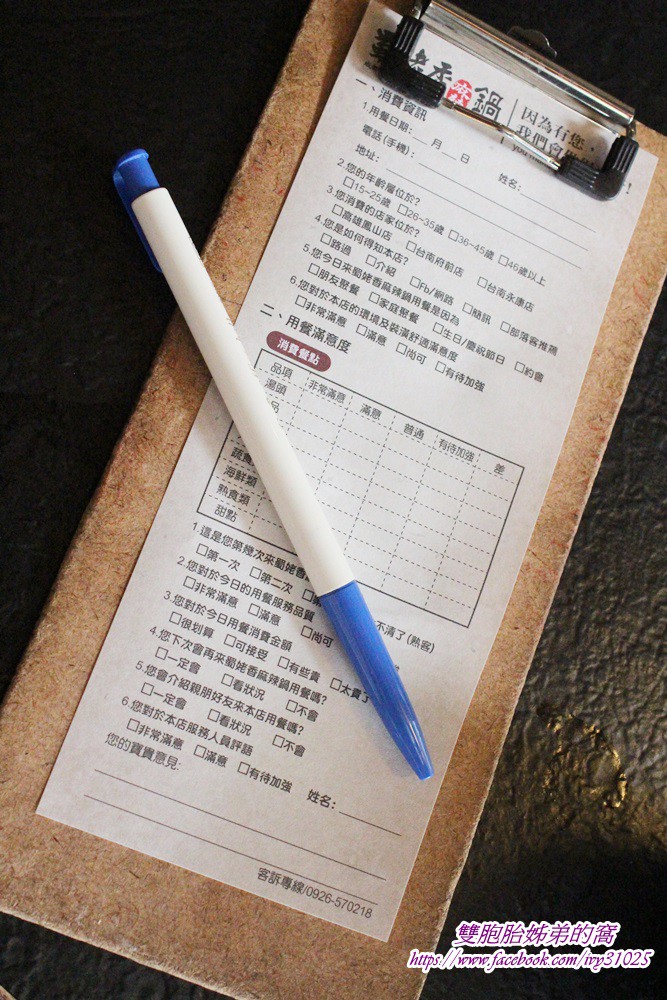 老香麻辣鍋
因為有您，
我們會
you
一、消費資訊
1.用餐日期:　月　日　姓名:
電話(手機):
地址:
2.您的年齡層位於?
□15~25歲 □26~35歲 □36~45歲 □46歲以上
3.您消費的店家位於?
□高雄鳳山店 □台南府前店 □台南永康店
4.您是如何得知本店?
□路過 □介紹 □Fb/網路 □簡訊 □部落客推薦
5.您今日來蜀姥香麻辣鍋用餐是因為
□朋友聚餐 □家庭聚餐 □生日/慶祝節日 □約會
6.您對於本店的環境及裝潢舒適滿意度
□非常滿意 □滿意 □尚可 □有待加強
二、用餐滿意度
消費餐點
品項 非常滿意 滿意 普通 有待加強 差
湯頭
品
蔬食
海鮮類
熟食類
甜點
1.這是您第幾次來蜀姥香
□第一次 □第二次 不清了(熟客)
2.您對於今日的用餐服務品質
□非常滿意 □滿意 □尚可
3.您對於今日用餐消費金額
□很划算 □可接受 □有些貴 □太貴了
4.您下次會再來蜀姥香麻辣鍋用餐嗎?
□一定會 □看狀況 □不會
5.您會介紹親朋好友來本店用餐嗎?
□一定會 □看狀況 □不會
6.您對於本店服務人員評語
□非常滿意 □滿意 □有待加強 姓名:
您的寶貴意見:
客訴專線/0926-570218
雙胞胎姊弟的窩
https://www.facebook.com/ivy31025